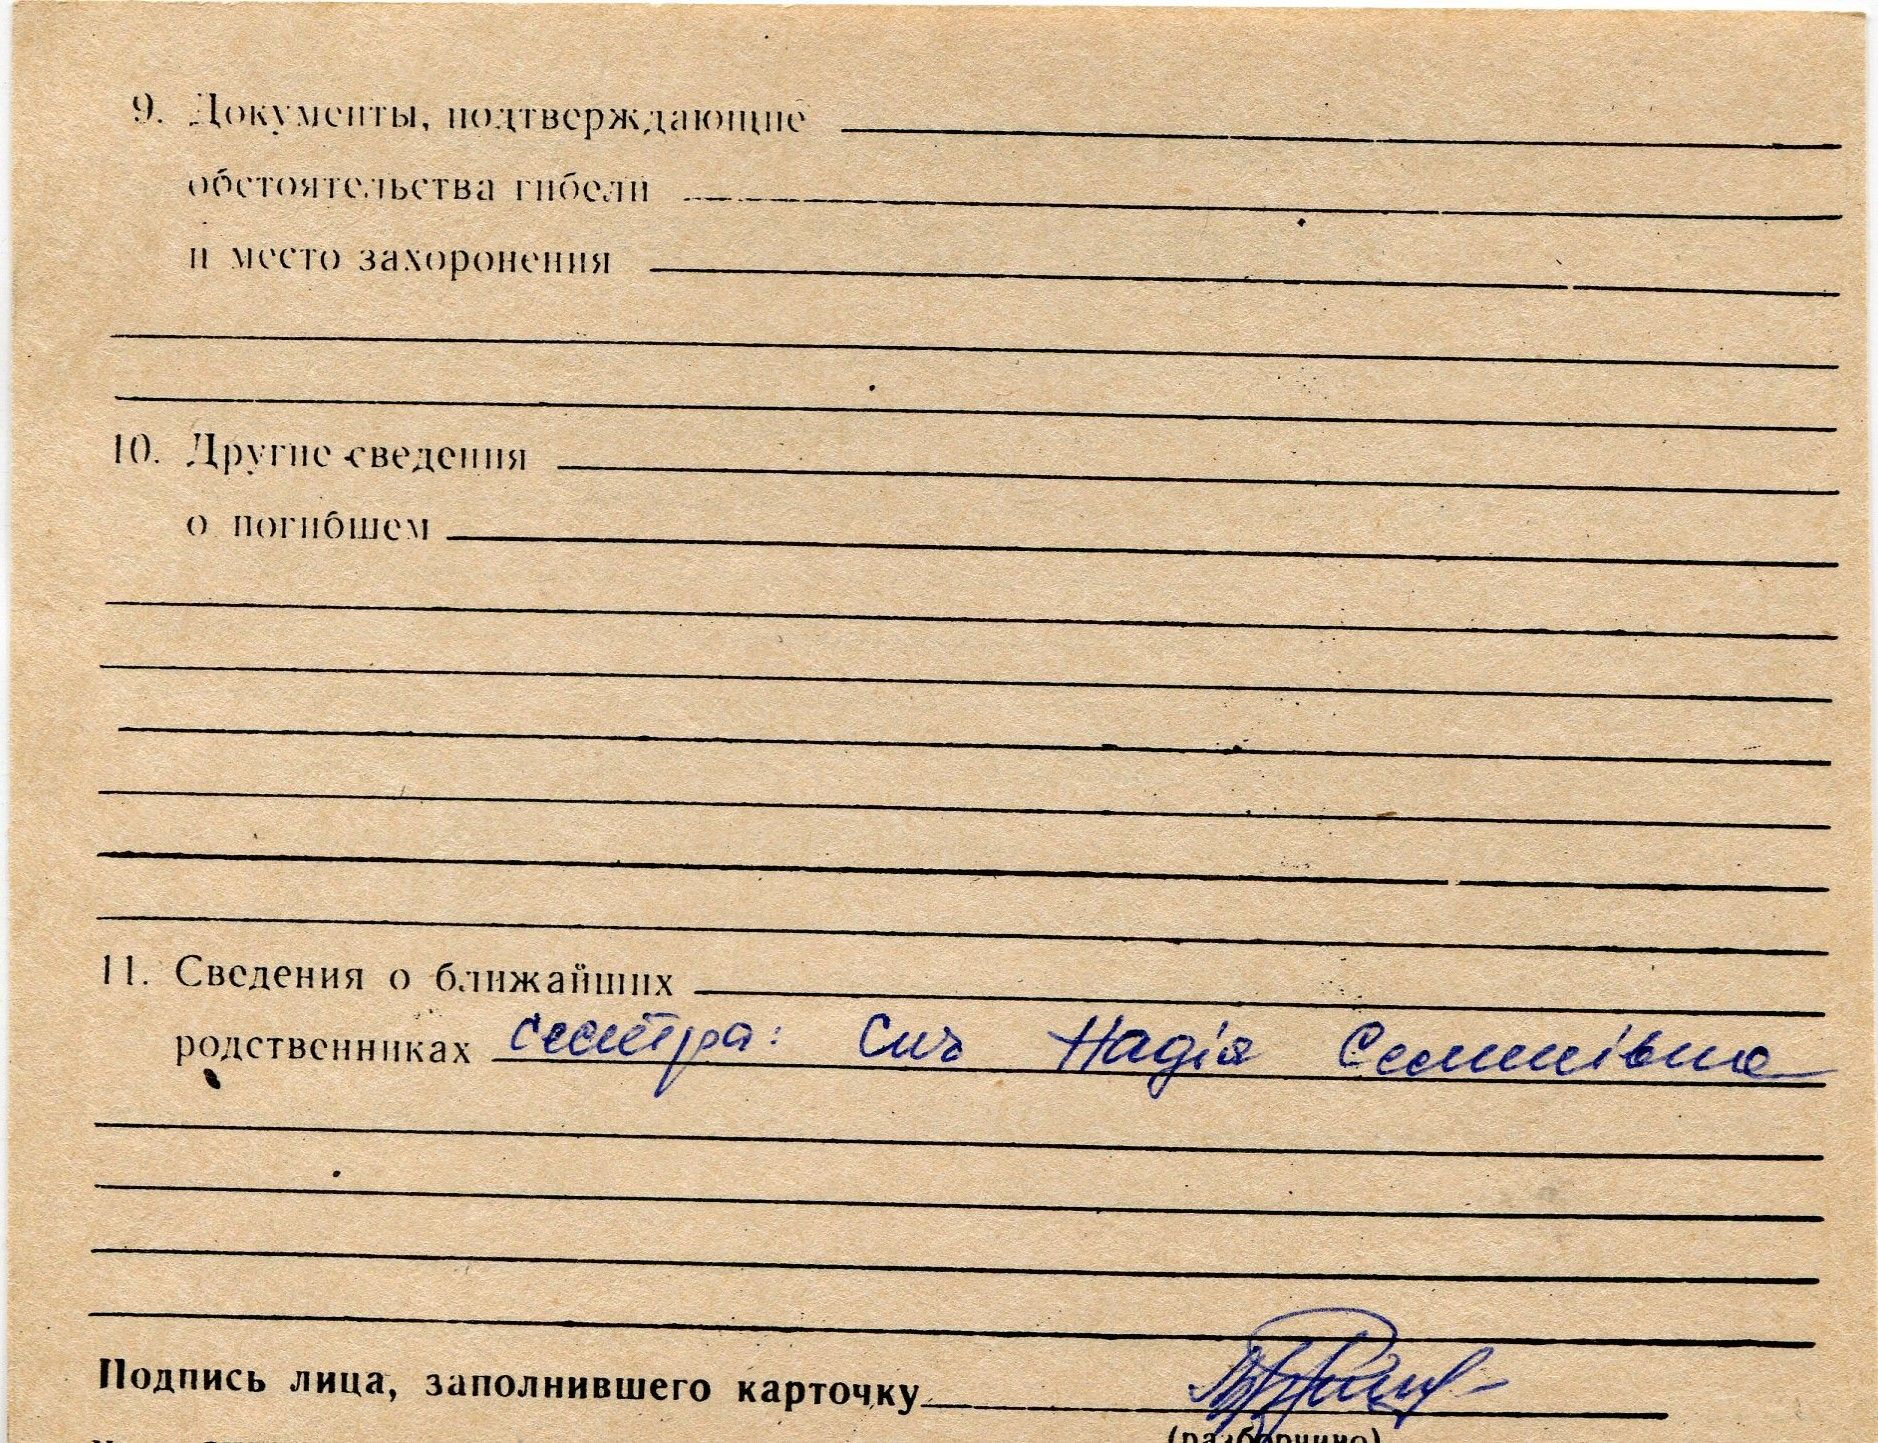 9. Документы, подтверждающие
обстоятельства гибели
и место захоронения
10. Другие сведения
о погибшем
11. Сведения о ближайших
родственниках сестра: Сич Надія Семенівна
Подпись лица, заполнившего карточку
(разборчиво)